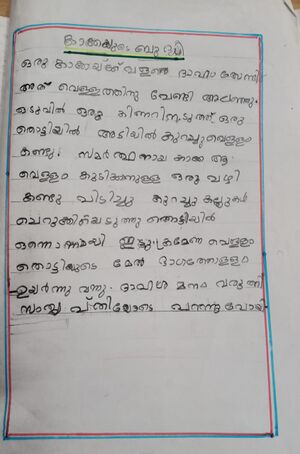 കാക്കയുടെ ബുദ്ധി
ഒരു കാക്കയ്ക്ക് വളരെ ദാഹം തോന്നി
അത് വെള്ളത്തിനു വേണ്ടി അലഞ്ഞു.
ഒടുവിൽ ഒരു കിണറിനടുത്ത് ഒരു
തൊട്ടിയിൽ അടിയിൽ കുറച്ചുവെള്ളം
കണ്ടു. സമർത്ഥനായ കാക്ക ആ
വെള്ളം കുടിക്കാനുള്ള ഒരു വഴി
കണ്ടു പിടിച്ചു കുറച്ചു കല്ലുകൾ
പെറുക്കിയെടുത്തു തൊട്ടിയിൽ
ഒന്നൊന്നായി ഇട്ടു ക്രമേണ വെള്ളം
തൊട്ടിയുടെ മേൽ ഭാഗത്തോളം
ഉയർന്നു വന്നു. ദാഹിശ മനം വരുത്തി
സംതൃപ്തിയോടെ പറന്നുപോയി